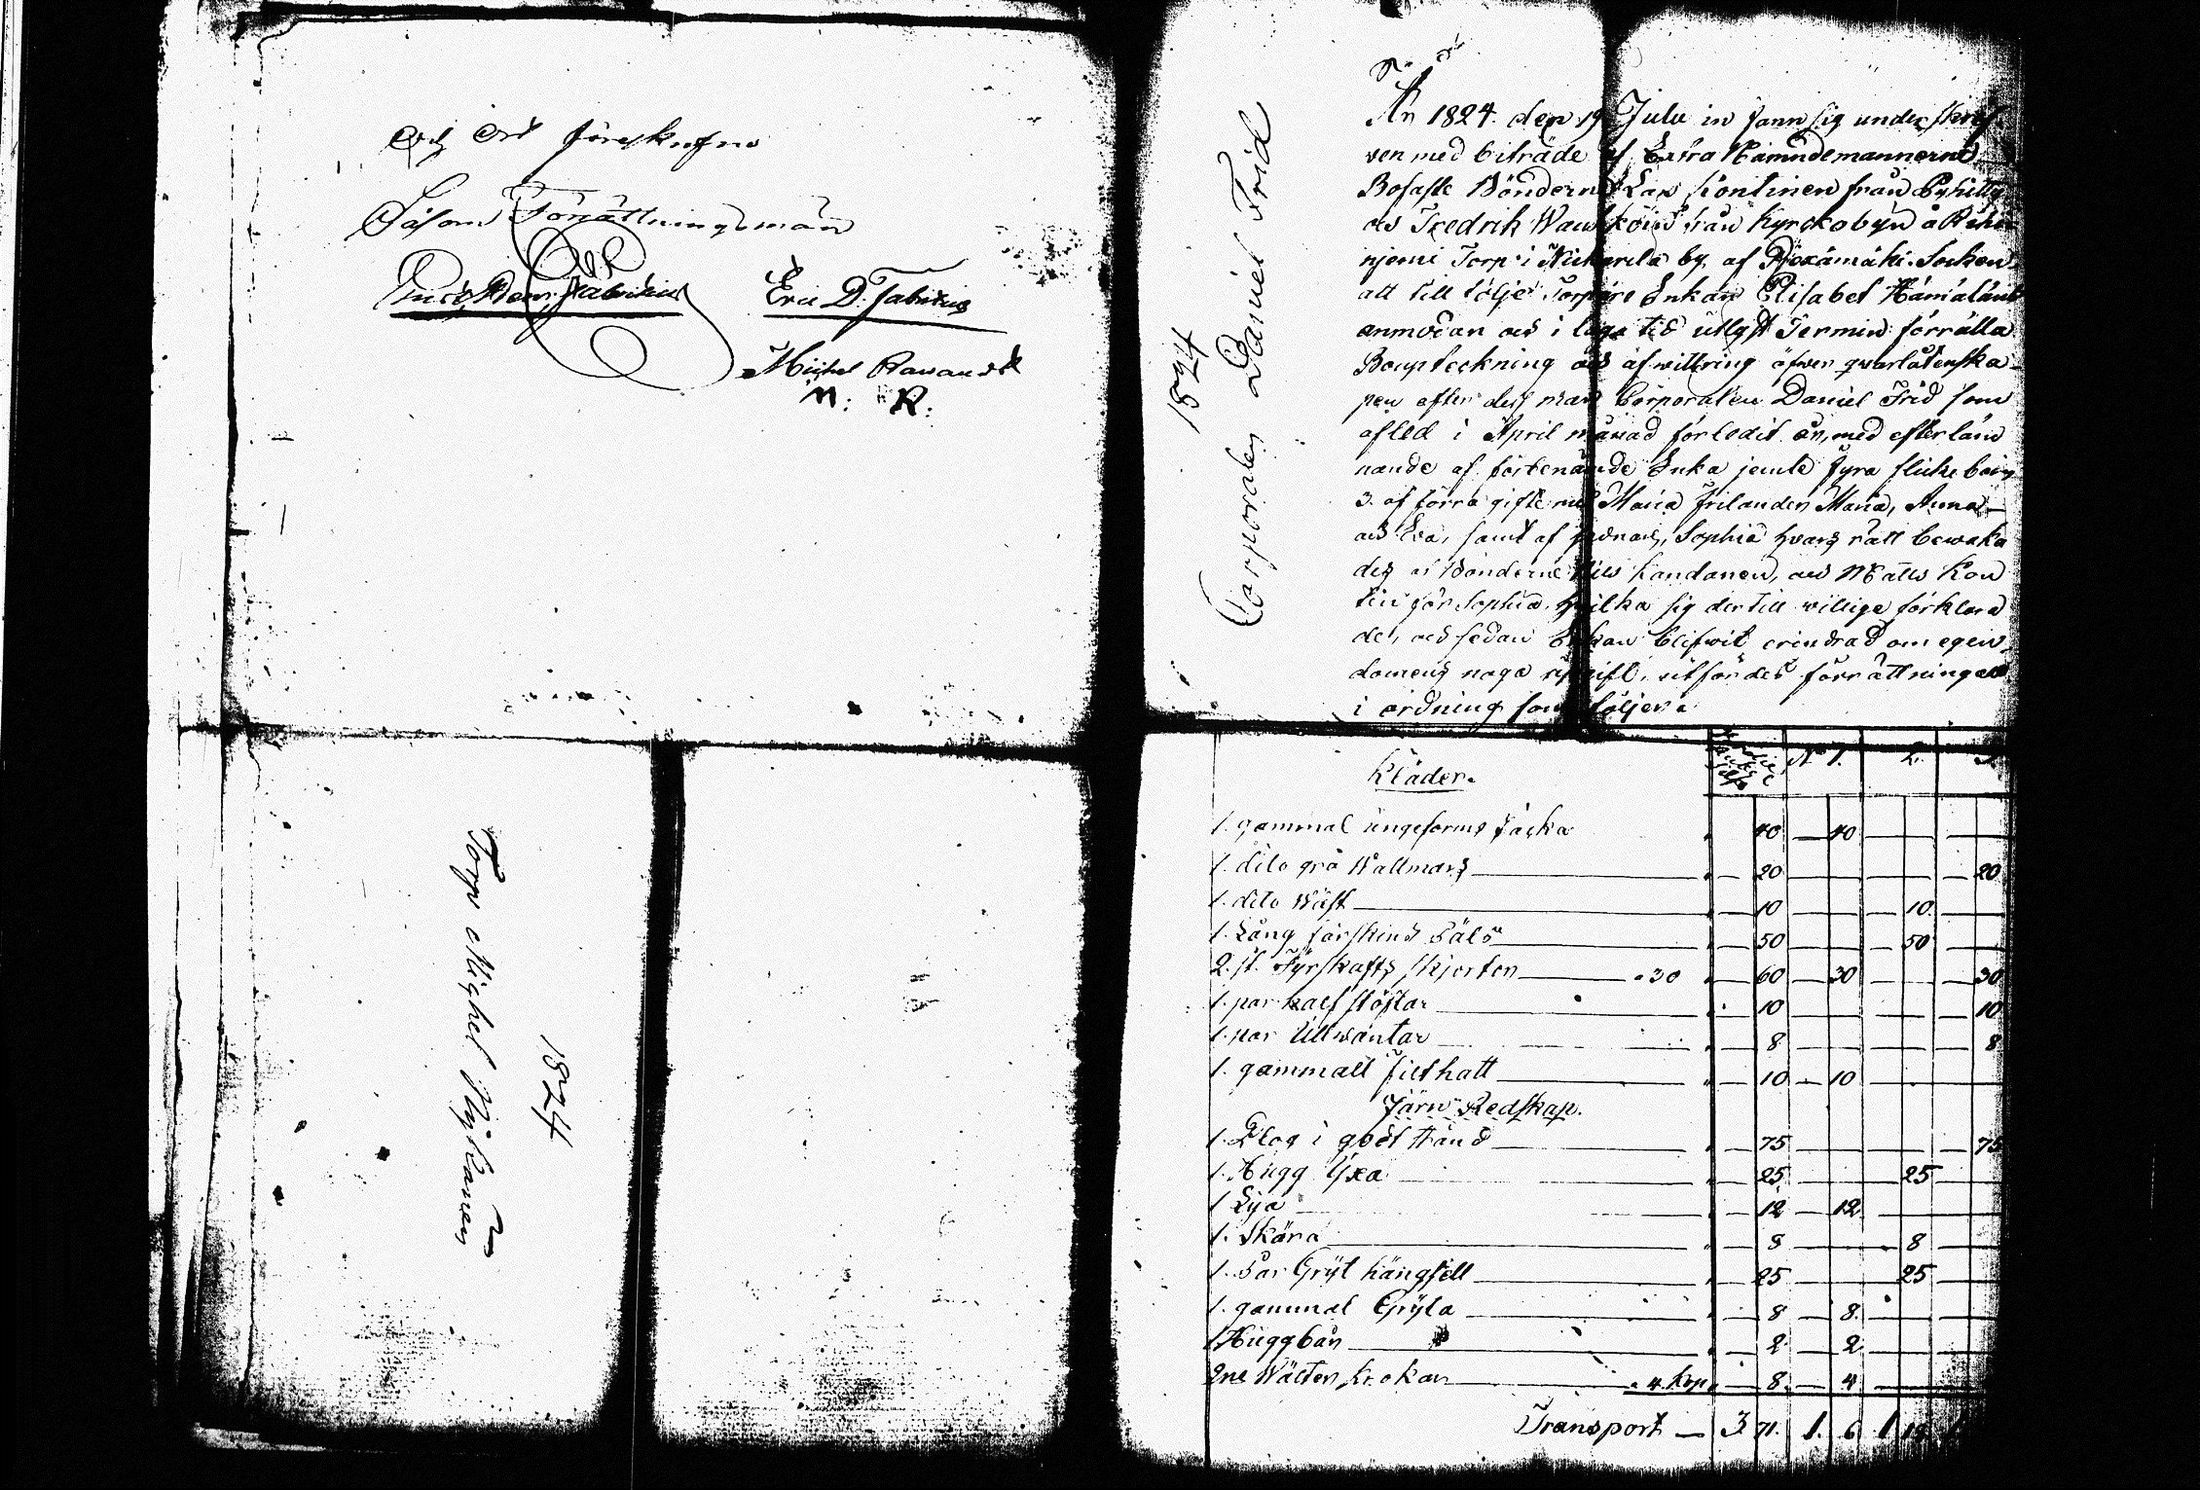 och ort föreskrefne
Såsom Förrättningsmän
Eric D. Fabritius
Michel
M: R:
Torp Michel Nykänen
1824
1824
Corporalen Daniel Frid
År 1824 den 19 Julii in fann sig underskref
ven med biträde af Extra Nämndemännerne
Bofaste Bönderne Lars Kontinen från Pyhitty
och Fredrik från Kyrckobyn å
Torp i by af Pjexämäki Socken
att till följe Torpare Enkan Elisabet
anmodan och i laga tid utlyst Termin förrätta
Bouptekning och afwittring öfwer qwarlåtenska
pen efter dess man Corporalen Daniel Frid som
afled i April månad förledit år, med efterläm
nande af förbenämde Enka jemte fyra flicke barn
3 af förra gifte med Maria Frilander Maria, Anna
och Eva, samt af sednare, Sophia hvars rätt bewaka
des af Bönderne Nils Kandanen, och Matts Kon
tin för Sophia, hvilka sig dertill willige förklara
de, och sedan Enkan blifwit erindrad om egen
domens noga uppgift, utfördes förrättningen
i ordning som följer:
Kläder. No 1. 2. 3
1. gammal ungeforms Jacka 40 40
1. dito grå Wallmars 20 20
1. dito Wäst 10 10
1. Lång fårskins Päls 50 50
2. st. Fyrskafts skjortor 30 60 30 30
1. par half stöflar 10 10
1. par Ullwantar 8 8
1. gammalt Filthatt 10 10
Järn Redskap.
1. Plog i godt stånd 75 75
1. Hugg Yxa 25 25
1 Lija 12 12
1. Skära 8 8
1. Par Gryt hängsell 25 25
1. gammal Gryta 8 8
1 Huggbån 2 2
2ne Wälten krokar 4 kop 8 4
Transport 3 71. 1. 6 1